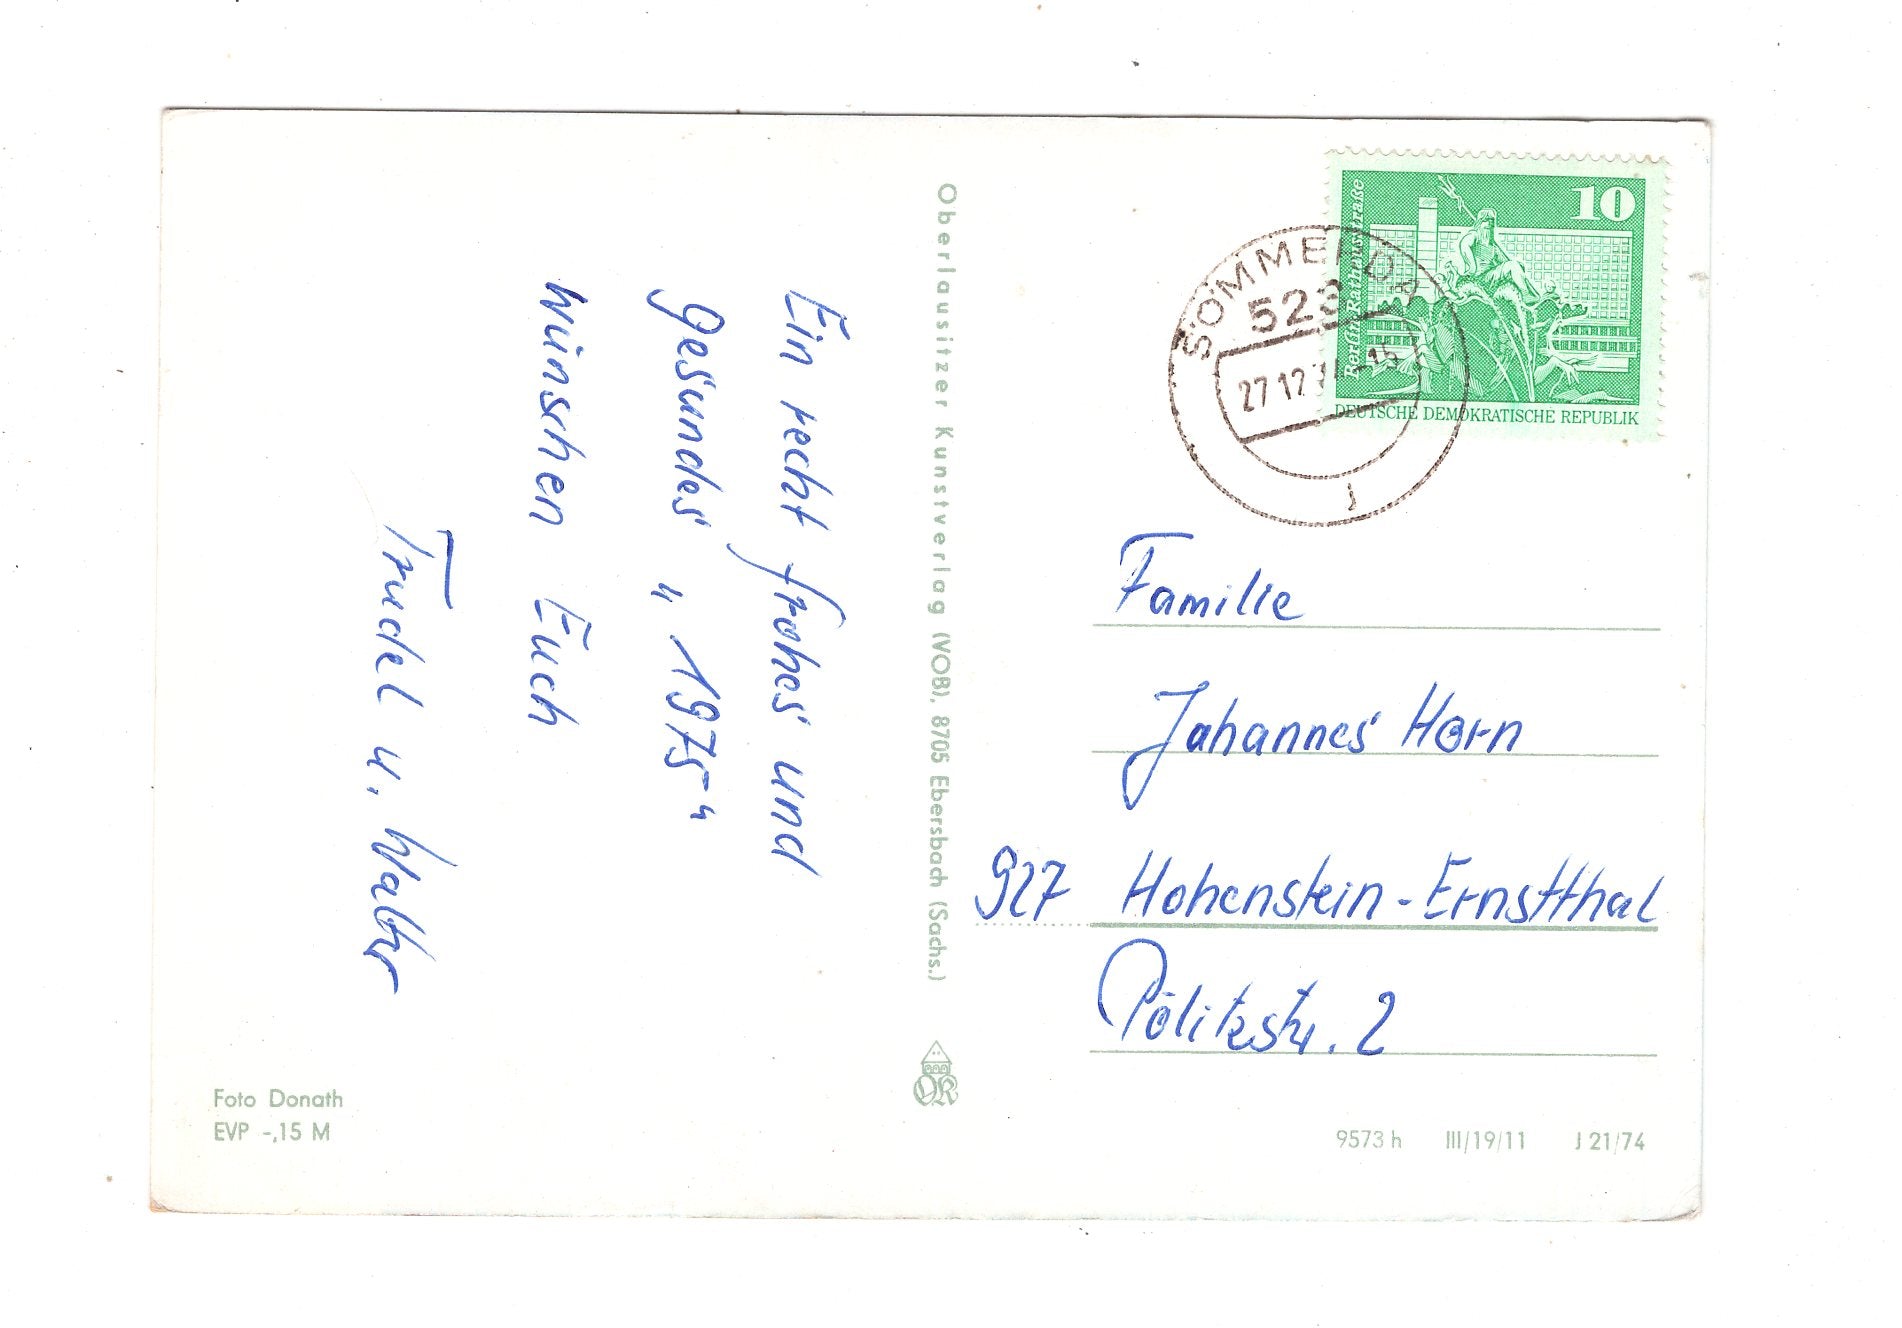 Ein recht frohes und
gesundes „1975“
wünschen Euch
Trudel u. Walter
Foto Donath
EVP -,15 M
Oberlausitzer Kunstverlag (VOB), 8705 Ebersbach (Sachs.)
10
Berlin, Rathausstraße
DEUTSCHE DEMOKRATISCHE REPUBLIK
SÖMMERDA
523
27.12.74-15
Familie
Johannes Horn
927 Hohenstein-Ernstthal
Pölitzstr. 2
9573 h III/19/11 J 21/74